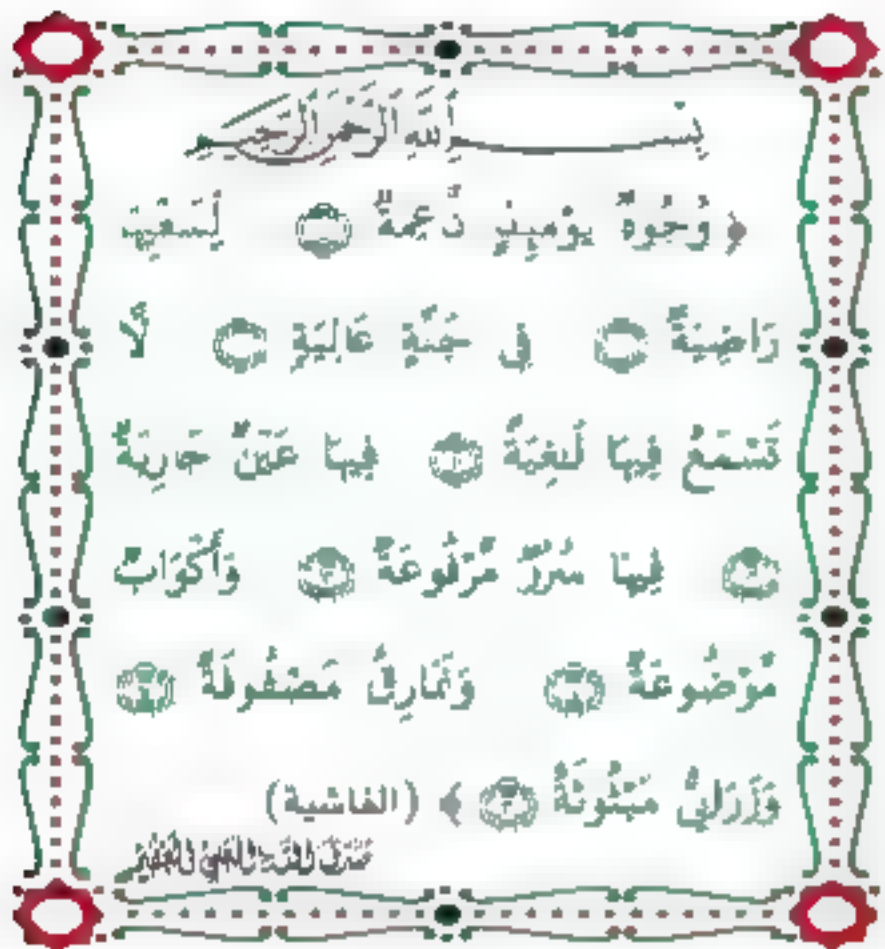 بِسْمِ اللَّهِ الرَّحْمَنِ الرَّحِيمِ
﴿ وُجُوهٌ يَوْمَئِذٍ نَّاعِمَةٌ ۝ لِّسَعْيِهَا
رَاضِيَةٌ ۝ فِي جَنَّةٍ عَالِيَةٍ ۝ لَّا
تَسْمَعُ فِيهَا لَاغِيَةً ۝ فِيهَا عَيْنٌ جَارِيَةٌ
۝ فِيهَا سُرُرٌ مَّرْفُوعَةٌ ۝ وَأَكْوَابٌ
مَّوْضُوعَةٌ ۝ وَنَمَارِقُ مَصْفُوفَةٌ ۝
وَزَرَابِيُّ مَبْثُوثَةٌ ۝ ﴾ (الغاشية)
صَدَقَ اللَّهُ الْعَلِيُّ الْعَظِيمُ